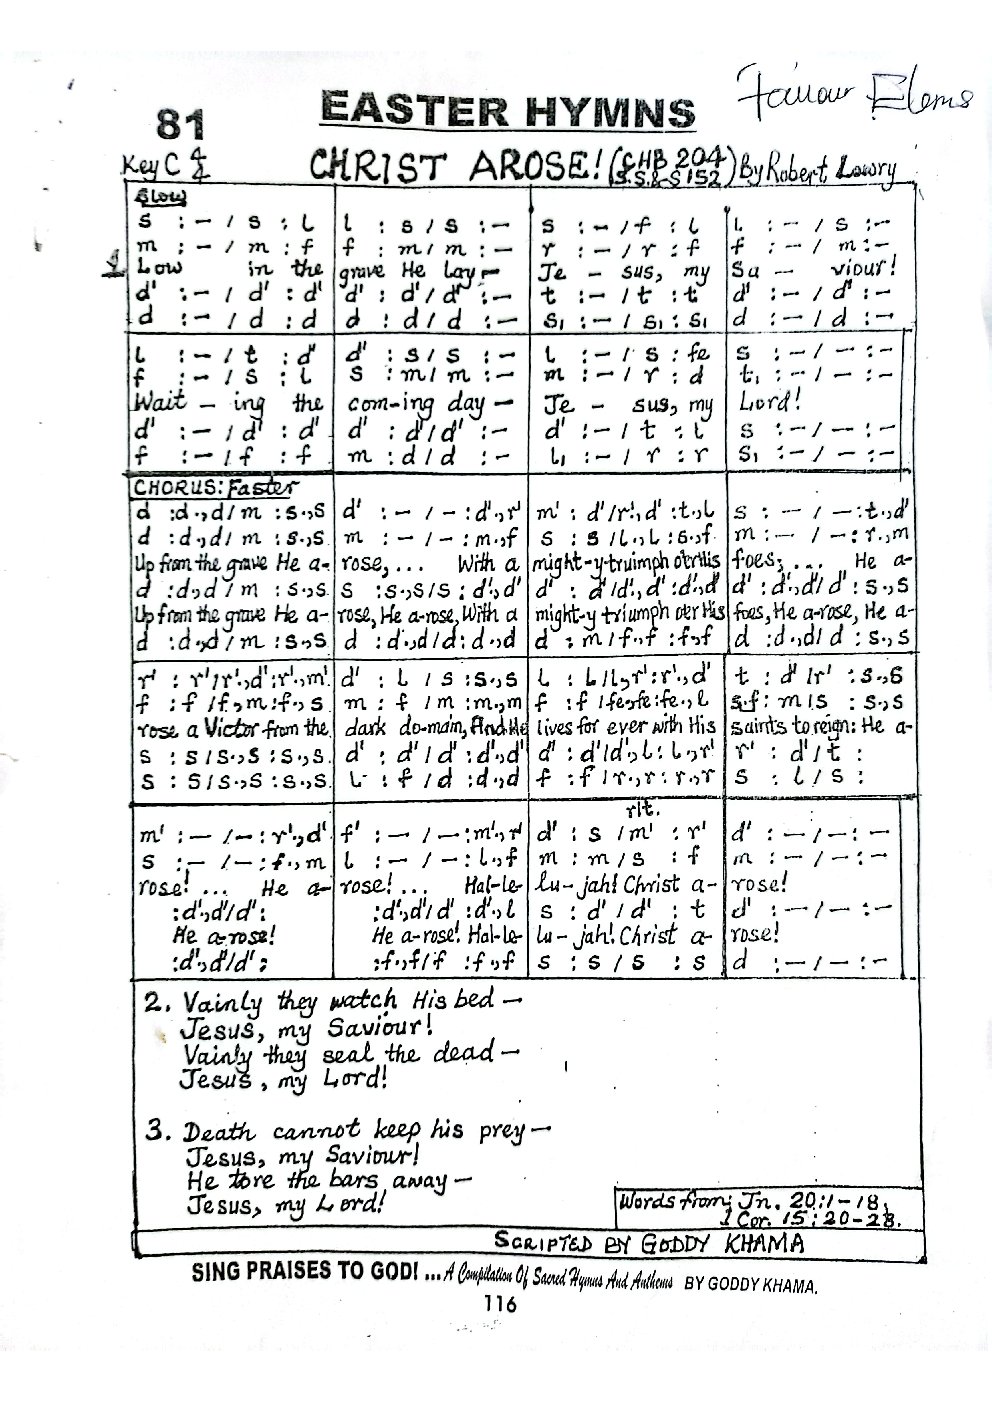 Favour Elems
EASTER HYMNS
81
Key C 4/4 CHRIST AROSE! (CHB 204 S.S.&S 152) By Robert Lowry
Slow
s :– / s : l | l : s / s :– | s :– / f : l | l :– / s :–
m :– / m : f | f : m / m :– | r :– / r : f | f :– / m :–
1 Low in the | grave He lay– | Je – sus, my | Sa – viour!
d' :– / d' : d' | d' : d' / d' :– | t :– / t : t | d' :– / d' :–
d :– / d : d | d : d / d :– | s₁ :– / s₁ : s₁ | d :– / d :–
l :– / t : d' | d' : s / s :– | l :– / s : fe | s :– / – :–
f :– / s : l | s : m / m :– | m :– / r : d | t₁ :– / – :–
Wait – ing the | com-ing day – | Je – sus, my | Lord!
d' :– / d' : d' | d' : d' / d' :– | d' :– / t : l | s :– / – :–
f :– / f : f | m : d / d :– | l₁ :– / r : r | s₁ :– / – :–
CHORUS: Faster
d :d.,d / m :s.,s | d' :– / – :d'.,r' | m' : d' / r'.,d' :t.,l | s :– / – :t.,d'
d :d.,d / m :s.,s | m :– / – :m.,f | s : s / l.,l :s.,f | m :– / – :r.,m
Up from the grave He a- | rose, ... With a | might-y-truimph o'er His | foes; ... He a-
d :d.,d / m :s.,s | s :s.,s / s :d'.,d' | d' : d' / d'.,d' :d'.,d' | d' :d'.,d' / d' :s.,s
Up from the grave He a- | rose, He a-rose, With a | might-y triumph o'er His | foes, He a-rose, He a-
d :d.,d / m :s.,s | d :d.,d / d :d.,d | d : m / f.,f :f.,f | d :d.,d / d :s.,s
r' : r' / r'.,d' :r'.,m' | d' : l / s :s.,s | l : l / l.,r' :r'.,d' | t : d' / r' :s.,s
f : f / f.,m :f.,s | m : f / m :m.,m | f : f / fe.,fe :fe.,l | s.f : m / s :s.,s
rose a Victor from the | dark do-main, And He | lives for ever with His | saints to reign: He a-
s : s / s.,s :s.,s | d' : d' / d' :d'.,d' | d' : d' / d'.,l : l.,r' | r' : d' / t :
s : s / s.,s :s.,s | l : f / d :d.,d | f : f / r.,r :r.,r | s : l / s :
rit.
m' :– / – :r'.,d' | f' :– / – :m'.,r' | d' : s / m' : r' | d' :– / – :–
s :– / – :f.,m | l :– / – :l.,f | m : m / s : f | m :– / – :–
rose! ... He a- | rose! ... Hal-le- | lu-jah! Christ a- | rose!
:d'.,d' / d' : | :d'.,d' / d' :d'.,l | s : d' / d' : t | d' :– / – :–
He a-rose! | He a-rose! Hal-le- | lu-jah! Christ a- | rose!
:d'.,d' / d' : | :f.,f / f :f.,f | s : s / s : s | d :– / – :–
2. Vainly they watch His bed –
Jesus, my Saviour!
Vainly they seal the dead –
Jesus, my Lord!
3. Death cannot keep his prey –
Jesus, my Saviour!
He tore the bars away –
Jesus, my Lord!
Words from; Jn. 20:1-18,
1 Cor. 15:20-28.
SCRIPTED BY GODDY KHAMA
SING PRAISES TO GOD! ... A Compilation Of Sacred Hymns And Anthems BY GODDY KHAMA.
116